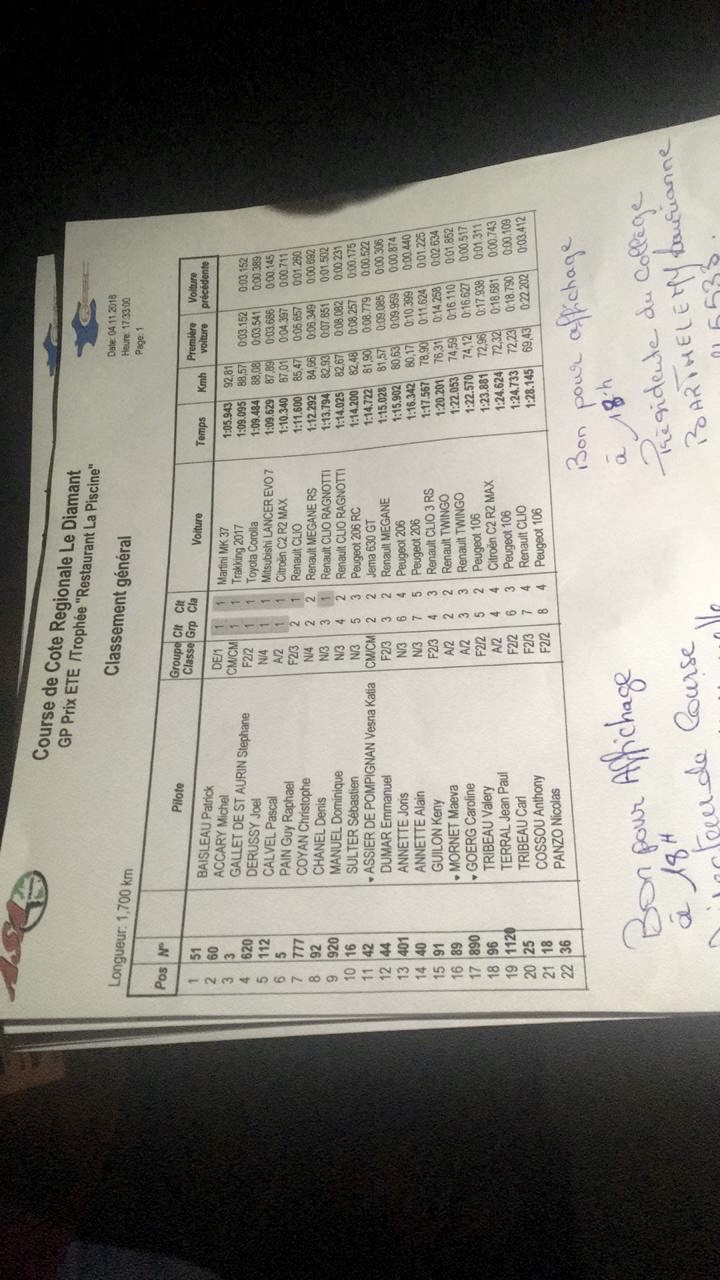 ASA
Course de Cote Regionale Le Diamant
GP Prix ETE /Trophée "Restaurant La Piscine"
Longueur: 1,700 km
Classement général
Date: 04.11.2018
Heure: 17:33:00
Page: 1
Pos N° Pilote Groupe Classe Clt Grp Clt Cla Voiture Temps Kmh Première voiture Voiture précédente
1 51 BAISLEAU Patrick DE/1 1 1 Martini MK 37 1:05.943 92,81
2 60 ACCARY Michel CM/CM 1 1 Trakking 2017 1:09.095 88,57 0:03.152 0:03.152
3 3 GALLET DE ST AURIN Stephane F2/2 1 1 Toyota Corolla 1:09.484 88,08 0:03.541 0:00.389
4 620 DERUSSY Joel N/4 1 1 Mitsubishi LANCER EVO 7 1:09.629 87,89 0:03.686 0:00.145
5 112 CALVEL Pascal A/2 1 1 Citroën C2 R2 MAX 1:10.340 87,01 0:04.397 0:00.711
6 5 PAIN Guy Raphael F2/3 2 1 Renault CLIO 1:11.600 85,47 0:05.657 0:01.260
7 777 COYAN Christophe N/4 2 2 Renault MEGANE RS 1:12.292 84,66 0:06.349 0:00.692
8 92 CHANEL Denis N/3 3 1 Renault CLIO RAGNOTTI 1:13.794 82,93 0:07.851 0:01.502
9 920 MANUEL Dominique N/3 4 2 Renault CLIO RAGNOTTI 1:14.025 82,67 0:08.082 0:00.231
10 16 SULTER Sébastien N/3 5 3 Peugeot 206 RC 1:14.200 82,48 0:08.257 0:00.175
11 42 ♥ ASSIER DE POMPIGNAN Vesna Katia CM/CM 2 2 Jema 630 GT 1:14.722 81,90 0:08.779 0:00.522
12 44 DUMAR Emmanuel F2/3 3 2 Renault MEGANE 1:15.028 81,57 0:09.085 0:00.306
13 401 ANNETTE Joris N/3 6 4 Peugeot 206 1:15.902 80,63 0:09.959 0:00.874
14 40 ANNETTE Alain N/3 7 5 Peugeot 206 1:16.342 80,17 0:10.399 0:00.440
15 91 GUILON Keny F2/3 4 3 Renault CLIO 3 RS 1:17.567 78,90 0:11.624 0:01.225
16 89 ♥ MORNET Maeva A/2 2 2 Renault TWINGO 1:20.201 76,31 0:14.258 0:02.634
17 890 ♥ GOERG Caroline A/2 3 3 Renault TWINGO 1:22.053 74,59 0:16.110 0:01.852
18 96 TRIBEAU Valery F2/2 5 2 Peugeot 106 1:22.570 74,12 0:16.627 0:00.517
19 1120 TERRAL Jean Paul A/2 4 4 Citroën C2 R2 MAX 1:23.881 72,96 0:17.938 0:01.311
20 25 TRIBEAU Carl F2/2 6 3 Peugeot 106 1:24.624 72,32 0:18.681 0:00.743
21 18 COSSOU Anthony F2/3 7 4 Renault CLIO 1:24.733 72,23 0:18.790 0:00.109
22 36 PANZO Nicolas F2/2 8 4 Peugeot 106 1:28.145 69,43 0:22.202 0:03.412
Bon pour Affichage
à 18H
de Course
Bon pour affichage
à 18h
Présidente du Collège
BARTHELEMY